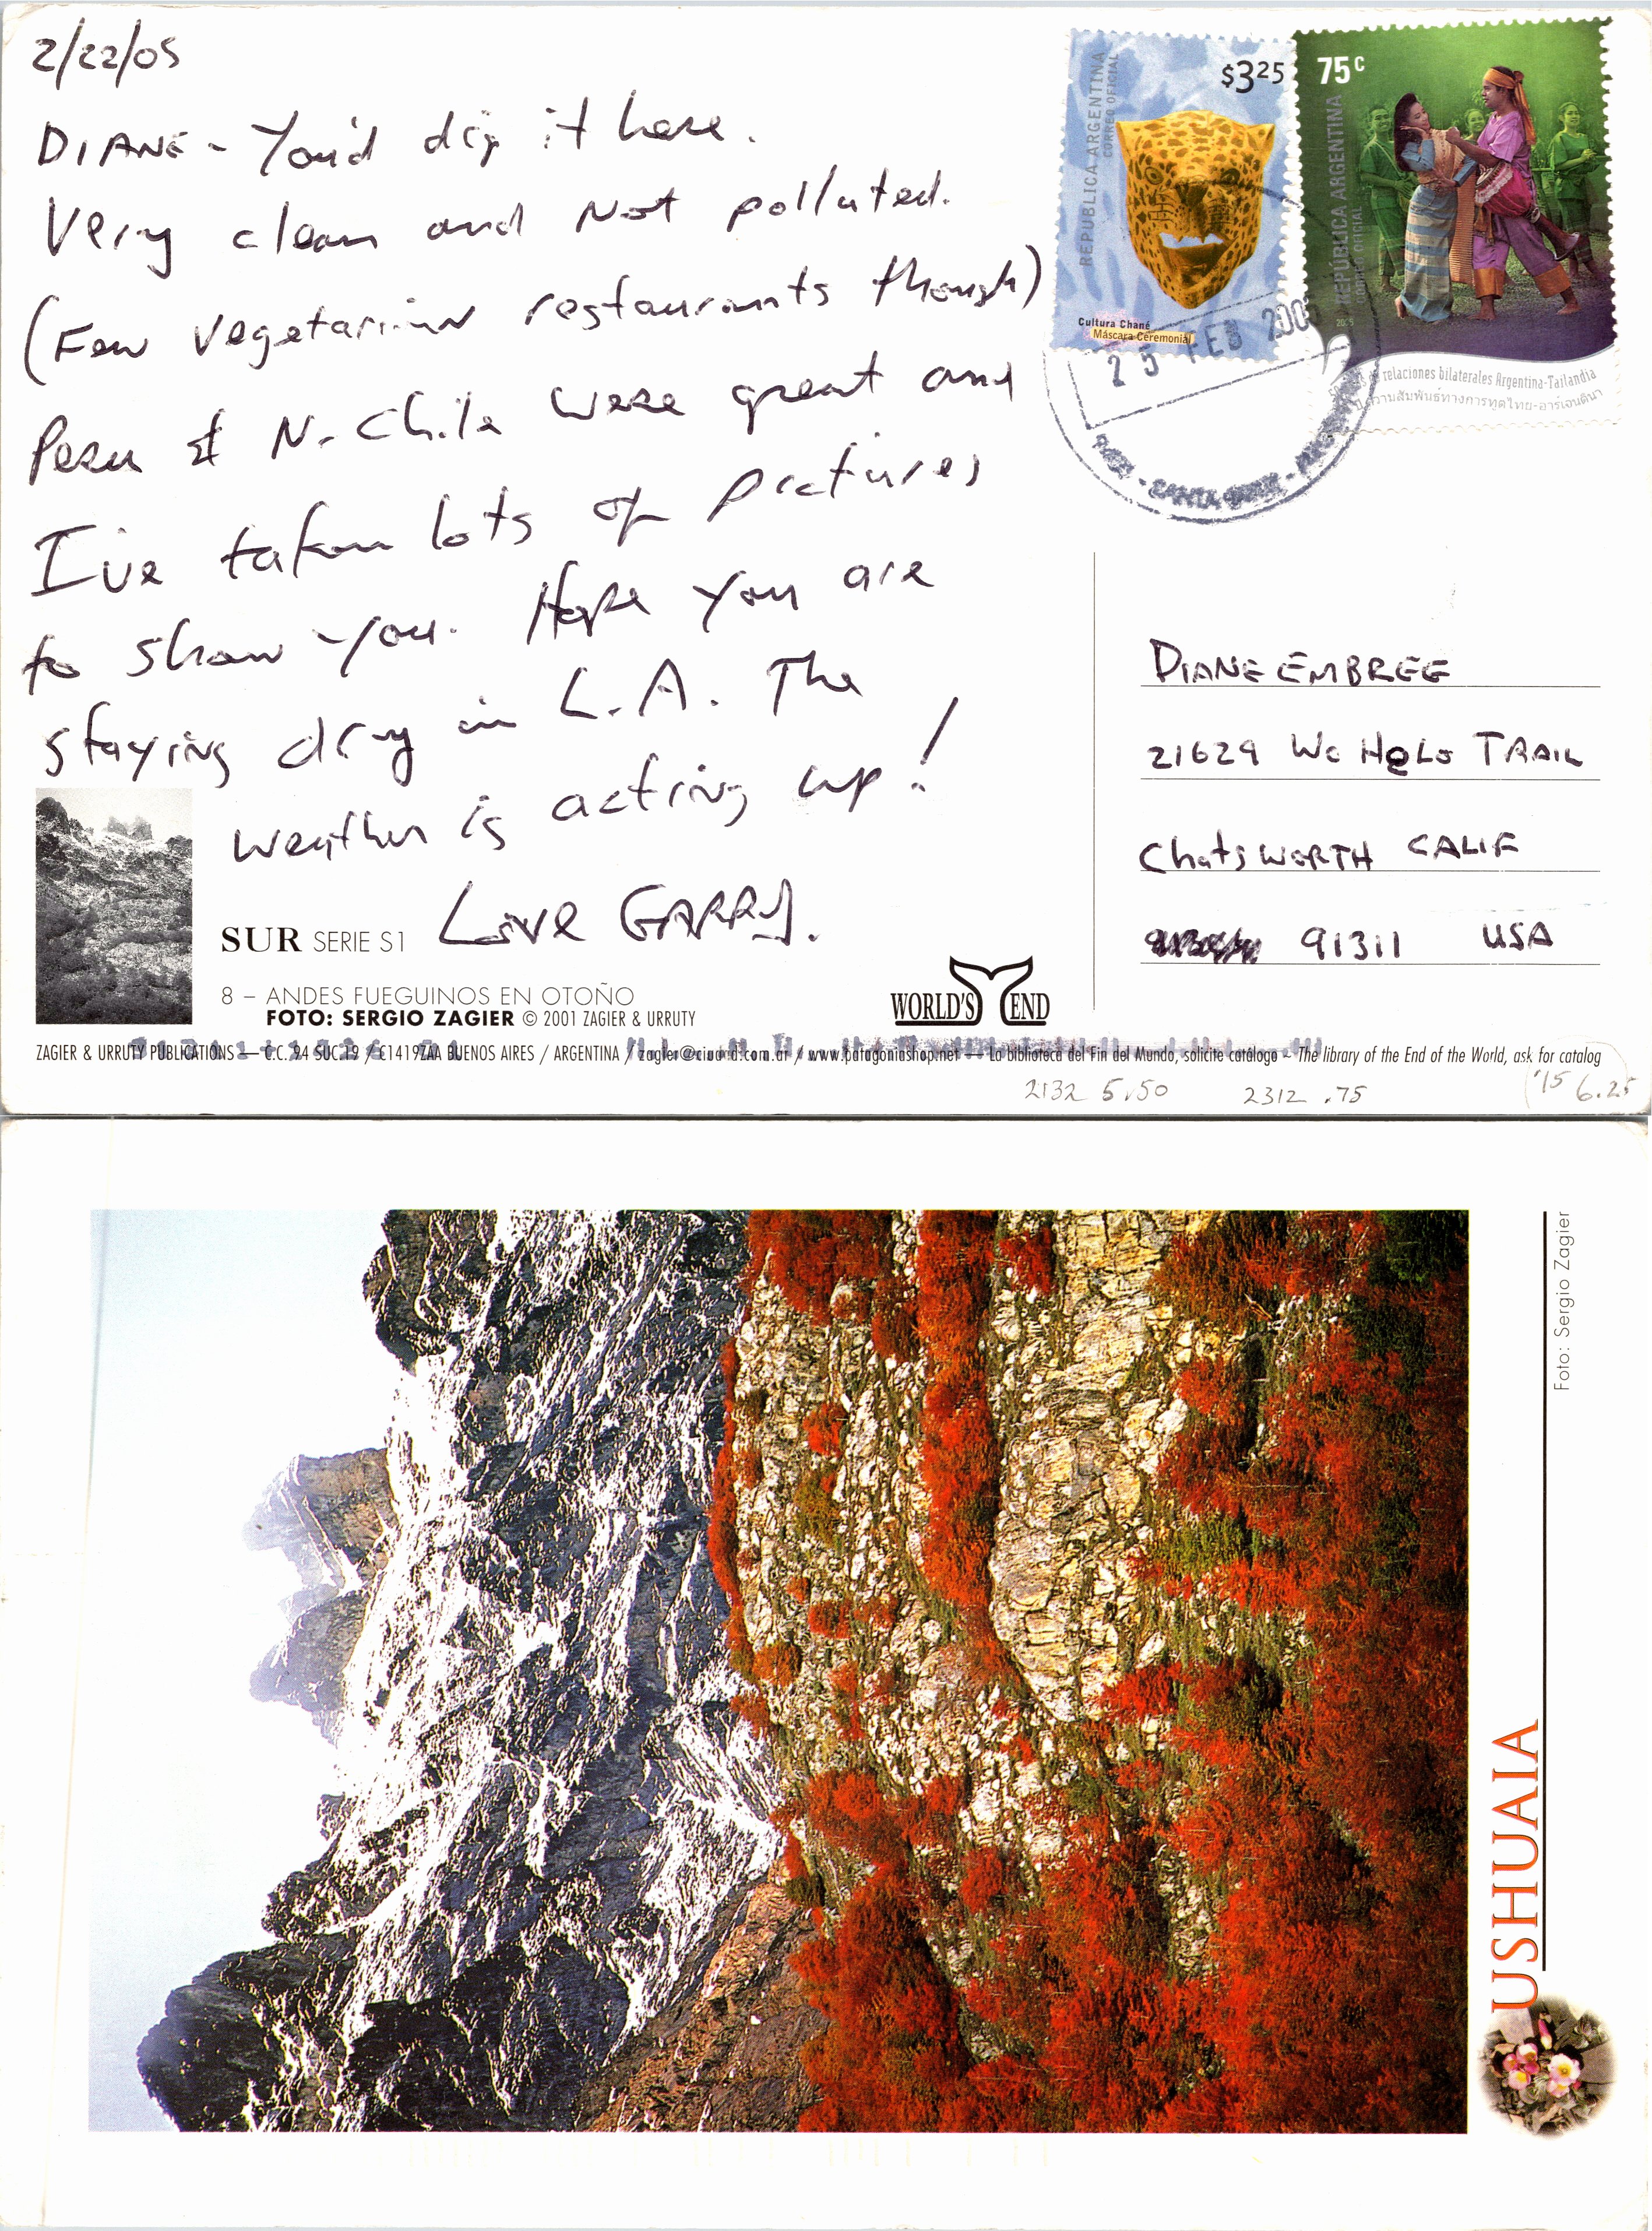 2/22/05
DIANE - You'd dig it here.
Very clean and Not polluted.
(Few vegetarian restaurants though)
Peru & N. Chile were great and
I've taken lots of pictures
to show you. Hope you are
staying dry in L.A. The
weather is acting up!
Love GARRY.
$3.25
REPUBLICA ARGENTINA
CORREO OFICIAL
Cultura Chané
Máscara Ceremonial
75c
REPUBLICA ARGENTINA
CORREO OFICIAL
2005
de relaciones bilaterales Argentina-Tailandia
ความสัมพันธ์ทางการทูตไทย-อาร์เจนตินา
25 FEB 200
SANTA CRUZ
DIANE EMBREE
21629 We HoLo TRAIL
Chatsworth CALIF
91311 USA
SUR SERIE S1
8 – ANDES FUEGUINOS EN OTOÑO
FOTO: SERGIO ZAGIER © 2001 ZAGIER & URRUTY
WORLD'S END
ZAGIER & URRUTY PUBLICATIONS — C.C. 94 SUC.19 / C1419ZAA BUENOS AIRES / ARGENTINA / zagier@ciudad.com.ar / www.patagoniashop.net — La biblioteca del Fin del Mundo, solicite catálogo - The library of the End of the World, ask for catalog
2132 5.50 2312 .75 '15 6.25
Foto: Sergio Zagier
USHUAIA